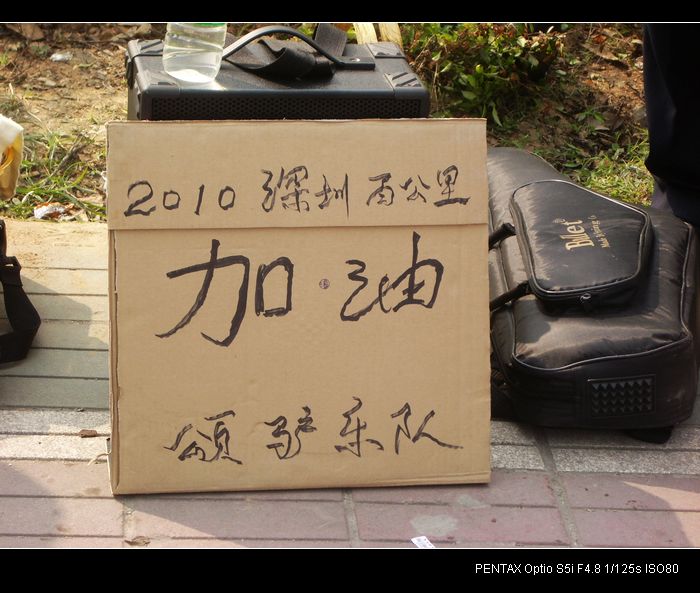 2010 深圳 百公里
加·油
颂旷乐队
Bllet®
PENTAX Optio S5i F4.8 1/125s ISO80